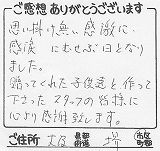 ご感想ありがとうございます
思い掛け無い感激に
感涙にむせぶ日となり
ました。
踊ってくれた子供達と作って
下さったスタッフの皆様に
心より感謝致します。
ご住所 大阪 都道府県 堺 市区